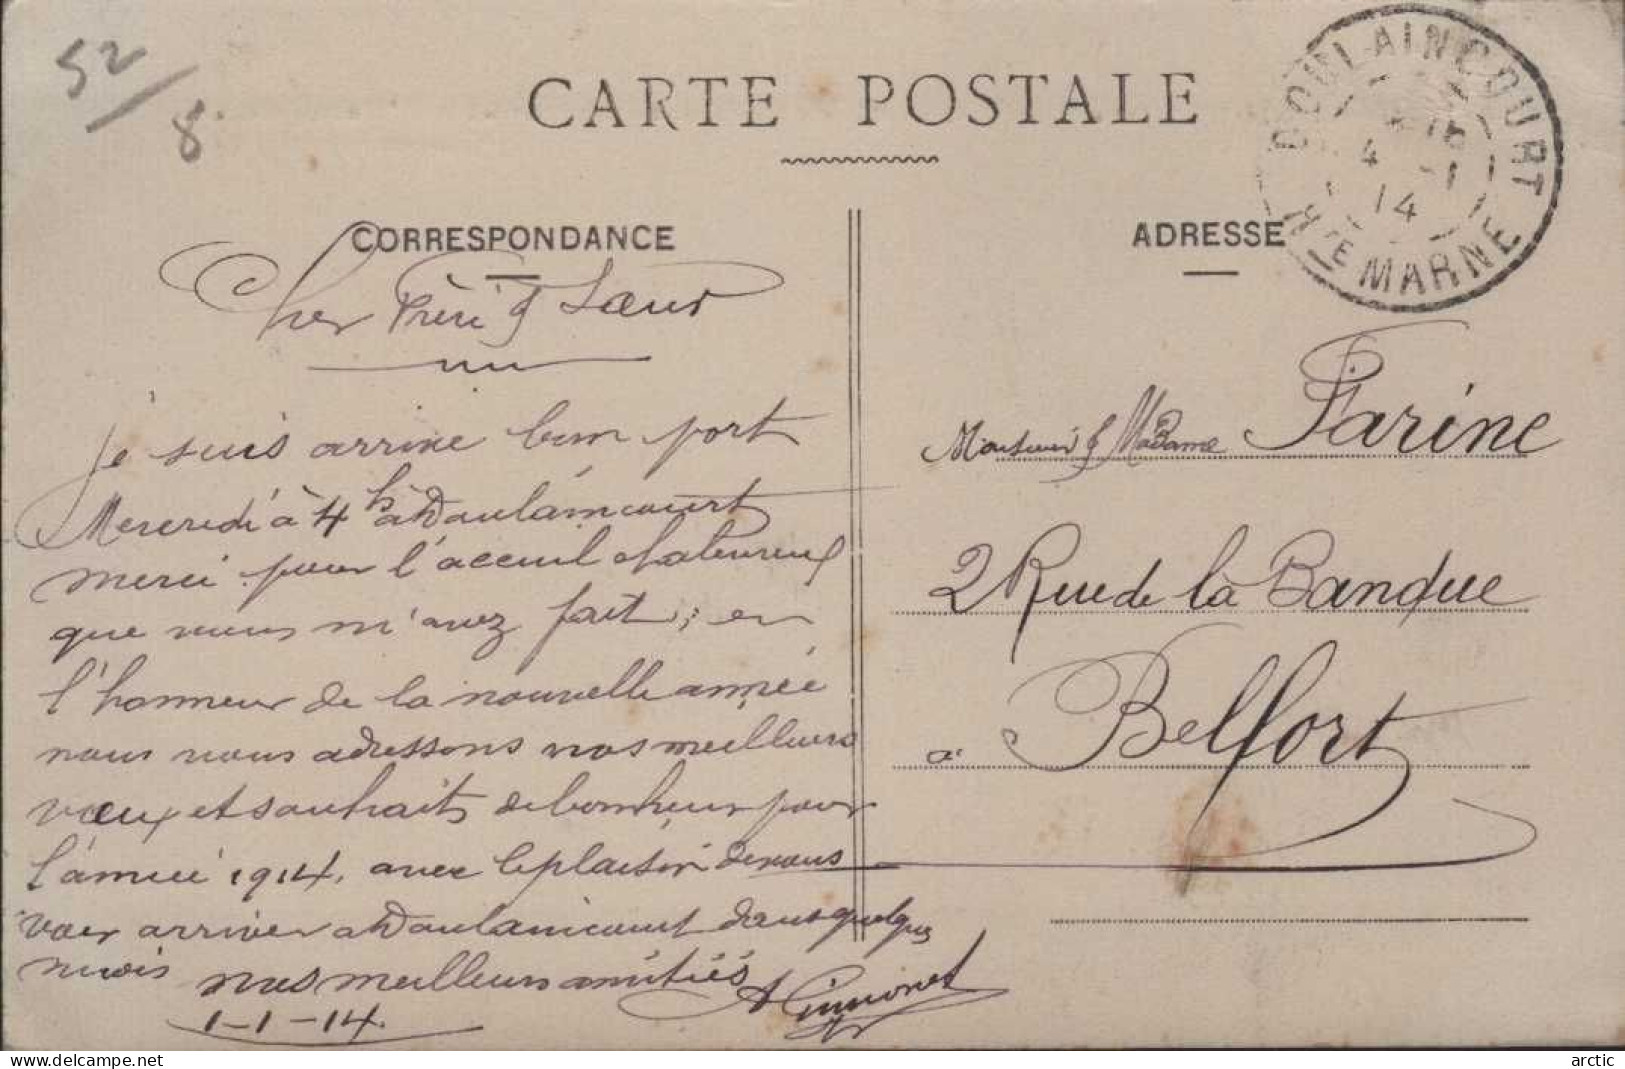 52/8
CARTE POSTALE
DOULAINCOURT
4 -1
14
HTE MARNE
CORRESPONDANCE
ADRESSE
Cher Frère & Sœur
je suis arrive bien port
Mercredi à 4h à Doulaincourt
merci pour l'acceuil chaleureux
que vous m'avez fait; en
l'honneur de la nouvelle année
nous vous adressons nos meilleurs
vœux et souhaits de bonheur pour
l'année 1914, avec le plaisir de vous
voir arriver a Doulaincourt dans quelques
mois nos meilleurs amitiés
1-1-14.
Monsieur & Madame Farine
2 Rue de la Banque
à Belfort
delcampe.net
arctic